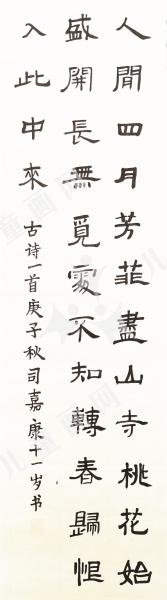 人間四月芳菲盡山寺桃花始
盛開長無覓處不知轉春歸恨
入此中來
古诗一首庚子秋司嘉康十一岁书